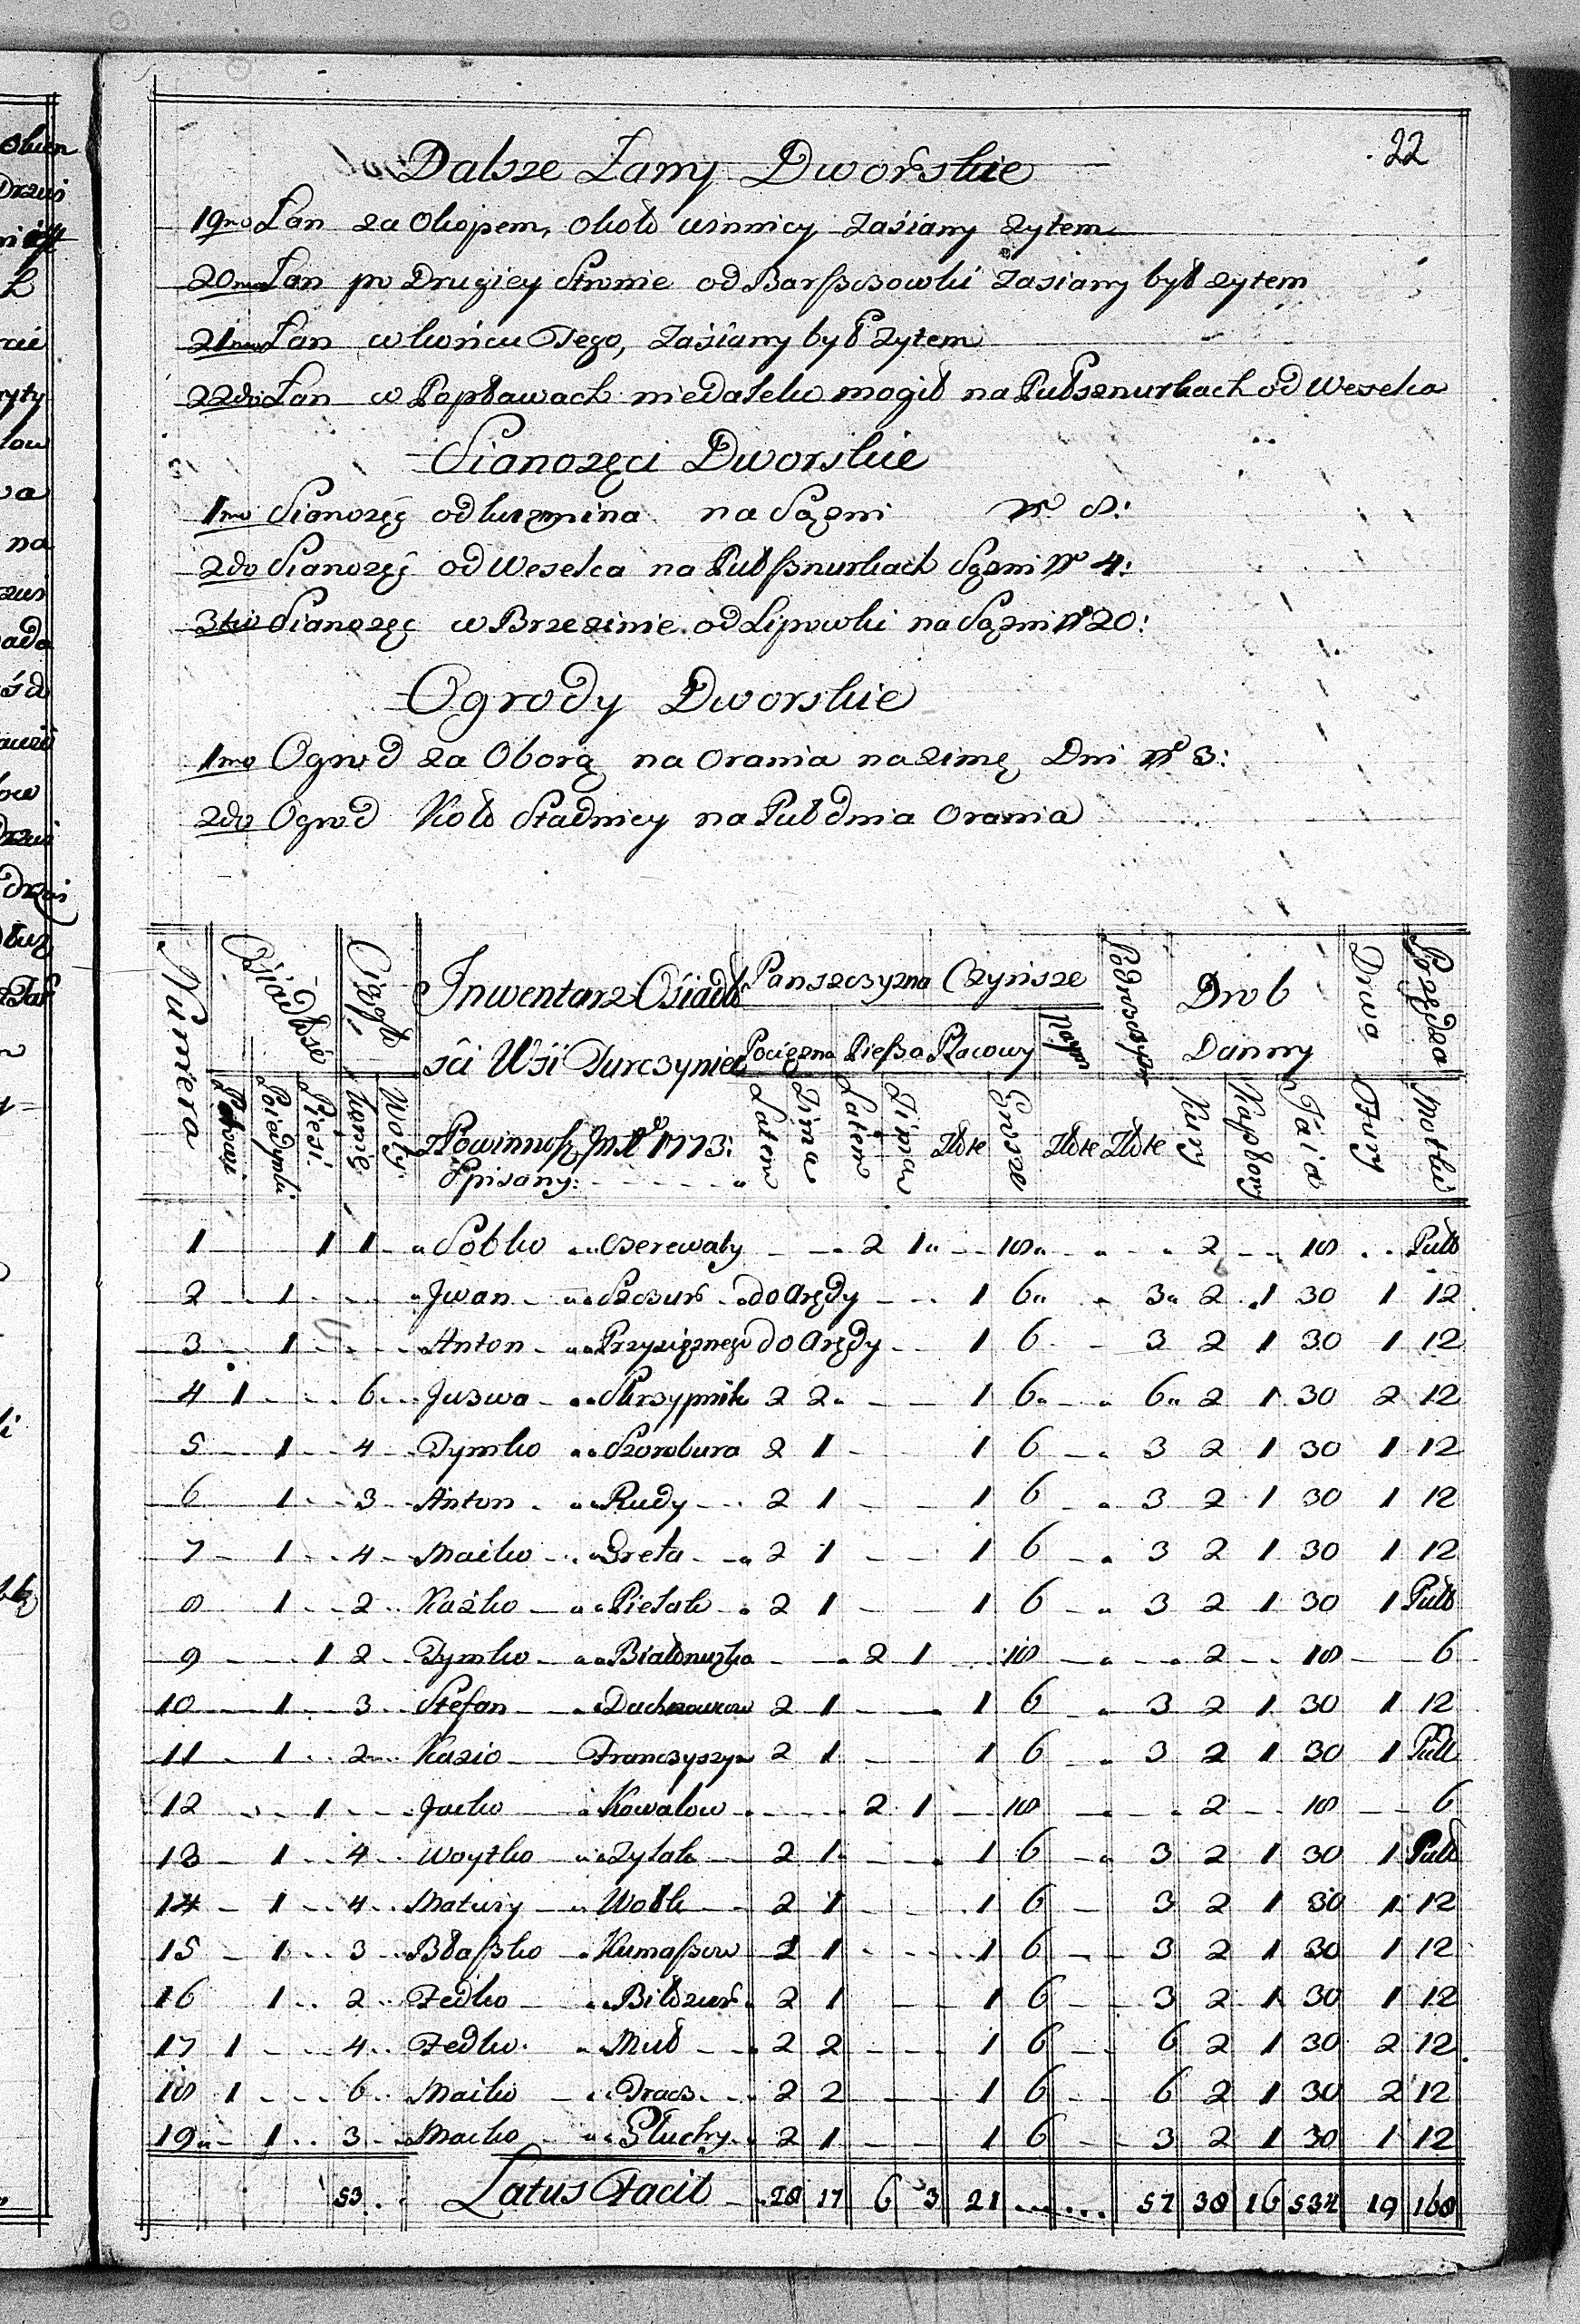 22
Dalsze Łany Dworskie
19no Łan za Okopem, około winnicy zasiany żytem
20mo Łan po Drugiey Stronie od Barszczowki zasiany był żytem
21mo Łan w końcu Tego, zasiany był żytem
22do Łan w Popławach niedaleko mogił na Puł sznurkach od Weselca
Sianożęci Dworskie
1mo Sianożęć od na Sążni Nro 8:
2do Sianożęć od Weselca na Puł sznurkach Sążni Nro 4:
3tio Sianożęć w Brzezinie od Lipowki na Sążni Nro 20:
Ogrody Dworskie
1mo Ogrod za Oborą na Orania na zimę Dni Nro 3:
2do Ogrod Koło Stadnicy na Puł dnia Orania
Numera Osiadłość Ciągło Inwentarz Osiadło Panszczyzna Czynsze Podroszczyzn Drob Drwa Pożędza
ści Wśi Turczyniec Pociężna Piesza Placowy Danny
Parowi Poiedynki Piesi Konie Woły z Powinnoś: 1773: Latem Zima Latem Zima Złote Grosze Złote Złote Kury Kapłony Iaia Fury Motki
Spisany:
1 1 1 Sobko Czerewaty 2 1 18 2 18 Puł
2 1 Jwan Szczur do Arędy 1 6 3 2 1 30 1 12
3 1 Anton Przysiężnego do Arędy 1 6 3 2 1 30 1 12
4 1 6 Juzwa Skrzypnik 2 2 1 6 6 2 1 30 2 12
5 1 4 Tymko Szorobura 2 1 1 6 3 2 1 30 1 12
6 1 3 Anton Rudy 2 1 1 6 3 2 1 30 1 12
7 1 4 Maiko Greta 2 1 1 6 3 2 1 30 1 12
8 1 2 Kaźko Pietak 2 1 1 6 3 2 1 30 1 Puł
9 1 2 Tymko Białonużka 2 1 18 2 18 6
10 1 3 Stefan 2 1 1 6 3 2 1 30 1 12
11 1 2 Kazio Franczyszyn 2 1 1 6 3 2 1 30 1 Puł
12 1 Jacko Kowalow 2 1 18 2 18 6
13 1 4 Woytko Zytak 2 1 1 6 3 2 1 30 1 Puł
14 1 4 Matwiy Wołk 2 1 1 6 3 2 1 30 1 12
15 1 3 Błaszko Kumaszow 2 1 1 6 3 2 1 30 1 12
16 1 2 Fedko Biłzur 2 1 1 6 3 2 1 30 1 12
17 1 4 Fedko Muł 2 2 1 6 6 2 1 30 2 12
18 1 6 Maiko Dracz 2 2 1 6 6 2 1 30 2 12
19 1 3 Macko Głuchy 2 1 1 6 3 2 1 30 1 12
53 Latus Facit 28 17 6 3 21 57 38 16 534 19 168